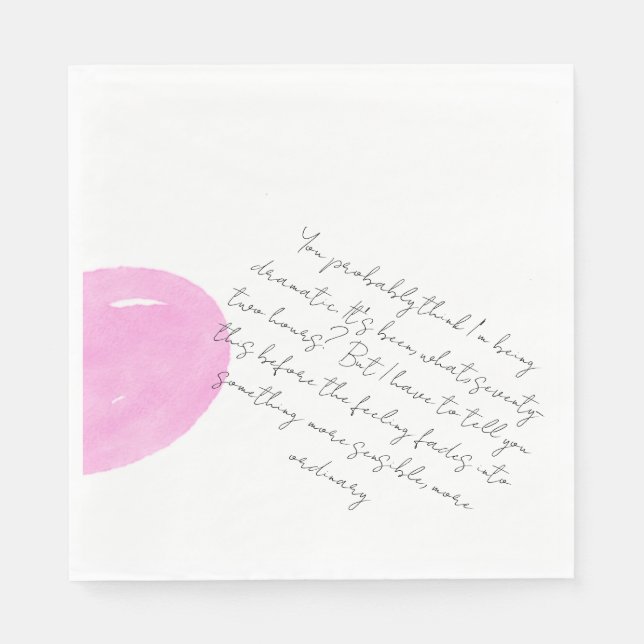 You probably think I'm being
dramatic. It's been, what, seventy-
two hours? But I have to tell you
this before the feeling fades into
something more sensible, more
ordinary